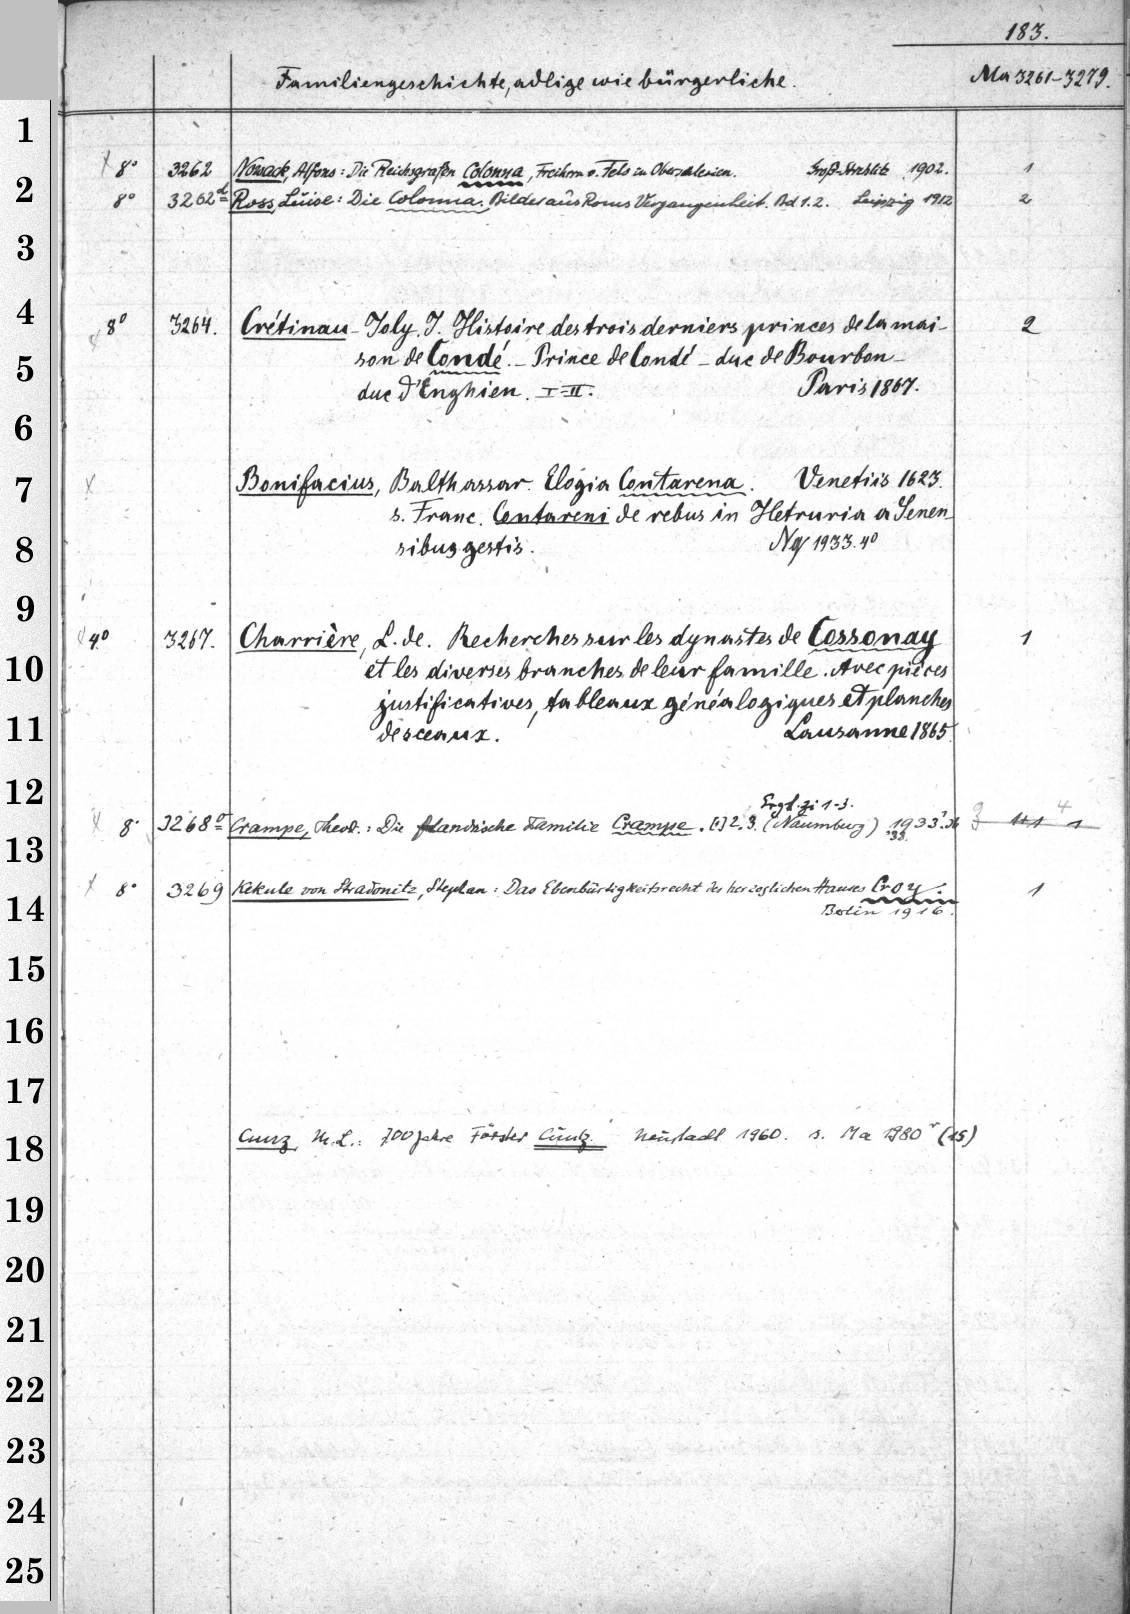 183.
Familiengeschichte, adlige wie bürgerliche. Ma 3261-3279.
8° 3262 Nowack, Alfons: Die Reichsgrafen Colonna, Freihrrn v. Fels in Oberschlesien. Groß-Strehlitz 1902. 1
8° 3262d Ross, Luise: Die Colonna. Bilder aus Roms Vergangenheit. Bd 1.2. Leipzig 1912 2
8° 3264. Crétinau-Joly. J. Histoire des trois derniers princes de la mai- 2
son de Condé. - Prince de Condé - duc de Bourbon -
duc d'Enghien. I-II. Paris 1867.
Bonifacius, Balthassar. Elogia Contarena. Venetiis 1623.
s. Franc. Contareni de rebus in Hetruria a Senen-
sibus gestis. Ng 1933. 4°
4° 3267. Charrière, L. de. Recherches sur les dynastes de Cossonay 1
et les diverses branches de leur famille. Avec pièces
justificatives, tableaux généalogiques et planches
de sceaux. Lausanne 1865.
Ergh. zu 1-3.
8° 3268 Crampe, Theod.: Die flandrische Familie Crampe. [1] 2.3. (Naumburg) 1933.
8° 3269 Kekule von Stradonitz, Stephan: Das Ebenbürtigkeitsrecht des herzoglichen Hauses Croy. 1
Berlin 1916.
Cunz, M. L.: 700 Jahre Förster Cunz. Neustadt 1960. s. Ma 1980 r (15)
1
2
3
4
5
6
7
8
9
10
11
12
13
14
15
16
17
18
19
20
21
22
23
24
25